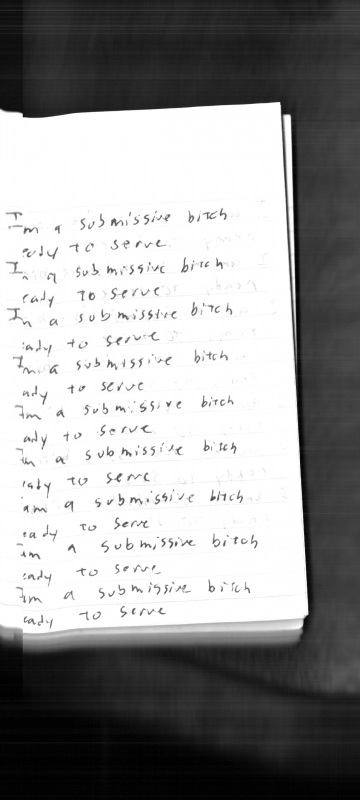 I'm a submissive bitch
eady to serve
I a submissive bitch
eady to serve
I'm a submissive bitch
iady to serve
I'm a submissive bitch
ady to serve
I'm a submissive bitch
ady to serve
I'm a submissive bitch
eady to serve
iam a submissive bitch
eady to serve
im a submissive bitch
eady to serve
I'm a submissive bitch
eady to serve